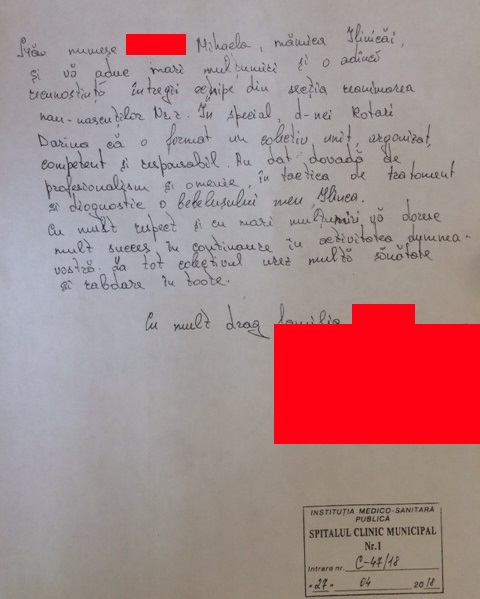 Mă numesc Mihaela, mămica Ilincăi,
și vă aduc mari mulțumiri și o adîncă
recunoștință întregii echipe din secția reanimarea
nou-născuților Nr.2. În special, d-nei Rotari
Darina că o format un colectiv unit, organizat,
competent și responsabil. Au dat dovadă de
profesionalism și omenie, în tactica de tratament
și diagnostic o bebelușului meu, Ilinca.
Cu mult respect și cu mari mulțumiri vă doresc
mult succes în continuare în activitatea dumnea-
voastră. La tot colectivul urez multă sănătate
și răbdare în toate.
Cu mult drag familia
INSTITUȚIA MEDICO-SANITARĂ
PUBLICĂ
SPITALUL CLINIC MUNICIPAL
Nr.1
Intrare nr. C-47/18
"27" 04 2018